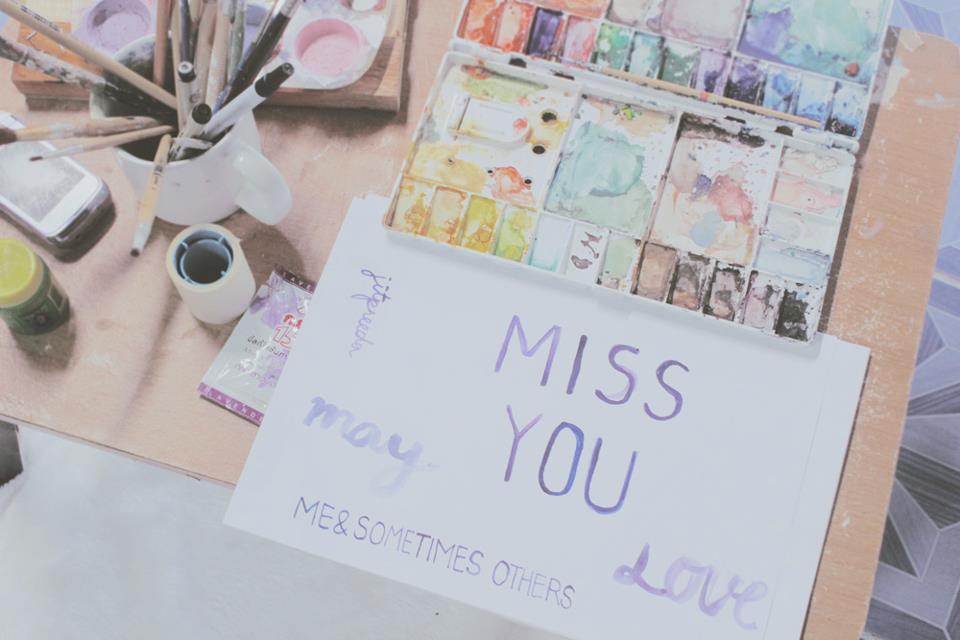 MISS
YOU
may
ME & SOMETIMES OTHERS
LOVE
LAVENDE